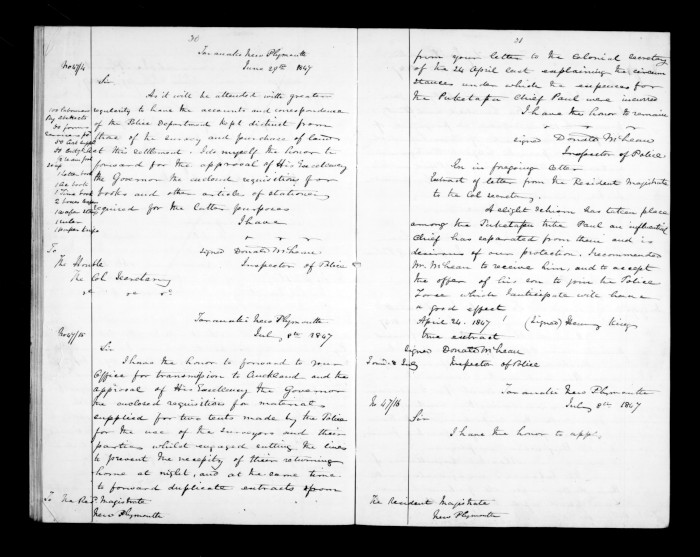 30
Taranaki New Plymouth
June 29th 1847
No 47/4
Sir,
As it will be attended with greater
regularity to have the accounts and correspondence
of the Police Department kept distinct from
that of the survey and purchase of land
at this settlement I do myself the honor to
forward for the approval of His Excellency
the Governor the enclosed requisition for
books and other articles of stationery
required for the latter purposes
I have
signed Donald McLean
Inspector of Police
To
The Honble
The Col Secretary
1 Letter book
1 Time book
Taranaki New Plymouth
July 8th 1847
No 47/15
Sir
I have the honor to forward to your
Office for transmission to Auckland and the
approval of His Excellency the Governor
the enclosed requisition for material
supplied for two tents made by the Police
for the use of the Surveyors and their
parties whilst engaged cutting the lines
to prevent the necessity of their returning
home at night, and at the same time
to forward duplicate extracts from
To The Resd Magistrate
New Plymouth
31
from your letter to the Colonial Secretary
of the 24 April last explaining the circum
stances under which the expenses for
the Puketapu Chief Paul were incurred
I have the honor to remain
signed Donald McLean
Inspector of Police
In foregoing letter
Extract of letter from the Resident Magistrate
to the Col Secretary.
A slight schism has taken place
among the Puketapu tribe Paul an influential
chief has separated from them and is
desirous of our protection. I recommended
Mr. McLean to receive him, and to accept
the offer of his son to join his Police
Force which I anticipate will have
a good effect
April 24. 1847 (signed) Henry King
true extract
signed Donald McLean
Inspector of Police
Taranaki New Plymouth
July 8th 1847
No 47/16
Sir
I have the honor to
The Resident Magistrate
New Plymouth